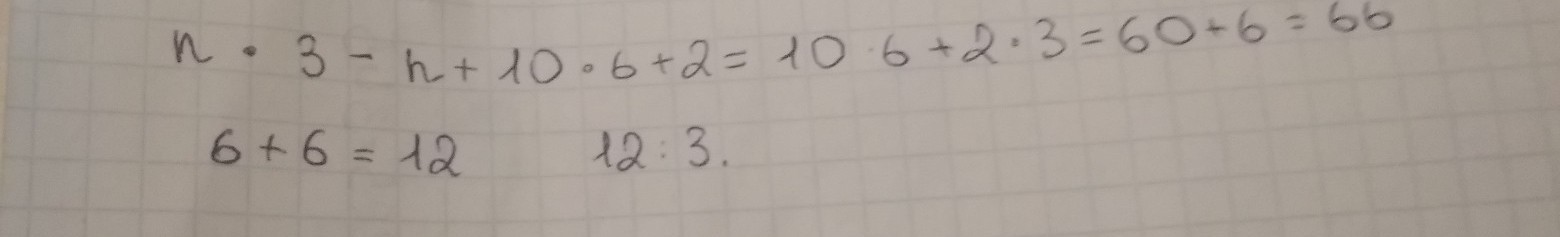 n · 3 - n + 10 · 6 + 2 = 10 · 6 + 2 · 3 = 60 + 6 = 66
6 + 6 = 12 12 : 3.